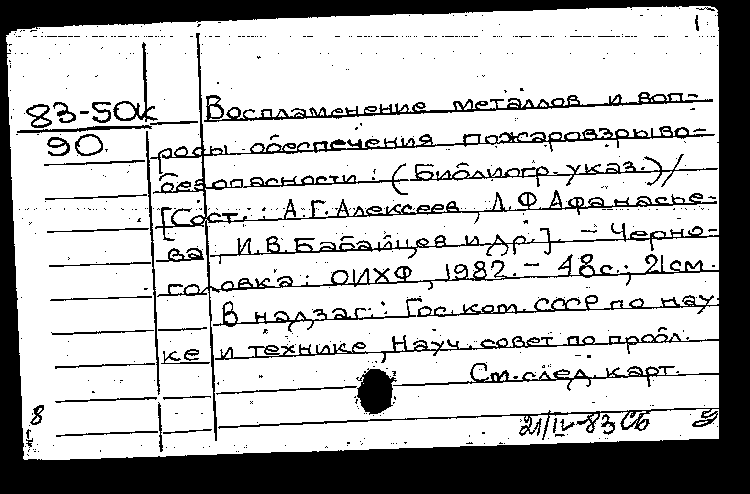 1
83-50к Воспламенение металлов и воп-
90. роды обеспечения пожаровзрыво-
безопасности: (Библиогр. указ.)/
[Сост.: А.Г. Алексеев, Л.Ф Афанасье-
ва, И.В. Бабайцев и др.]. - Черно-
головка: ОИХФ, 1982. - 48с.; 21см.
В надзаг.: Гос. ком. СССР по нау
ке и технике, Науч. совет по пробл.
См. след. карт.
8
21/IV-83 СБ